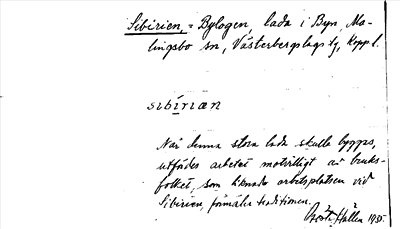 Sibirien, = Bylogen, lada i Byn, Ma-
lingsbo sn, Västerbergslags tg, Kopp l.
sıbíriæn
När denna stora lada skulle byggas,
utfördes arbetet motvilligt av bruks-
folket, som liknade arbetsplatsen vid
Sibirien, förmäla traditionen.
Hallén 1935.